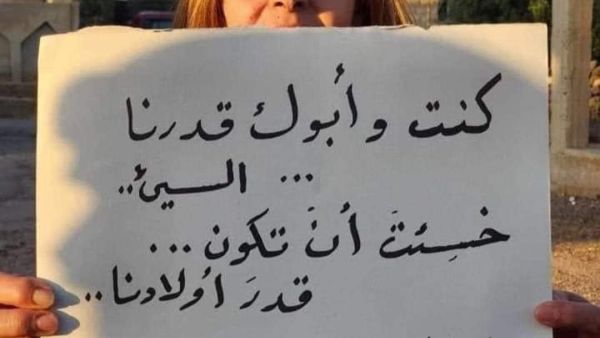 كنت وأبوك قدرنا
... السيئ..
خسِئتَ أنْ تكون...
قدرَ أولادنا..